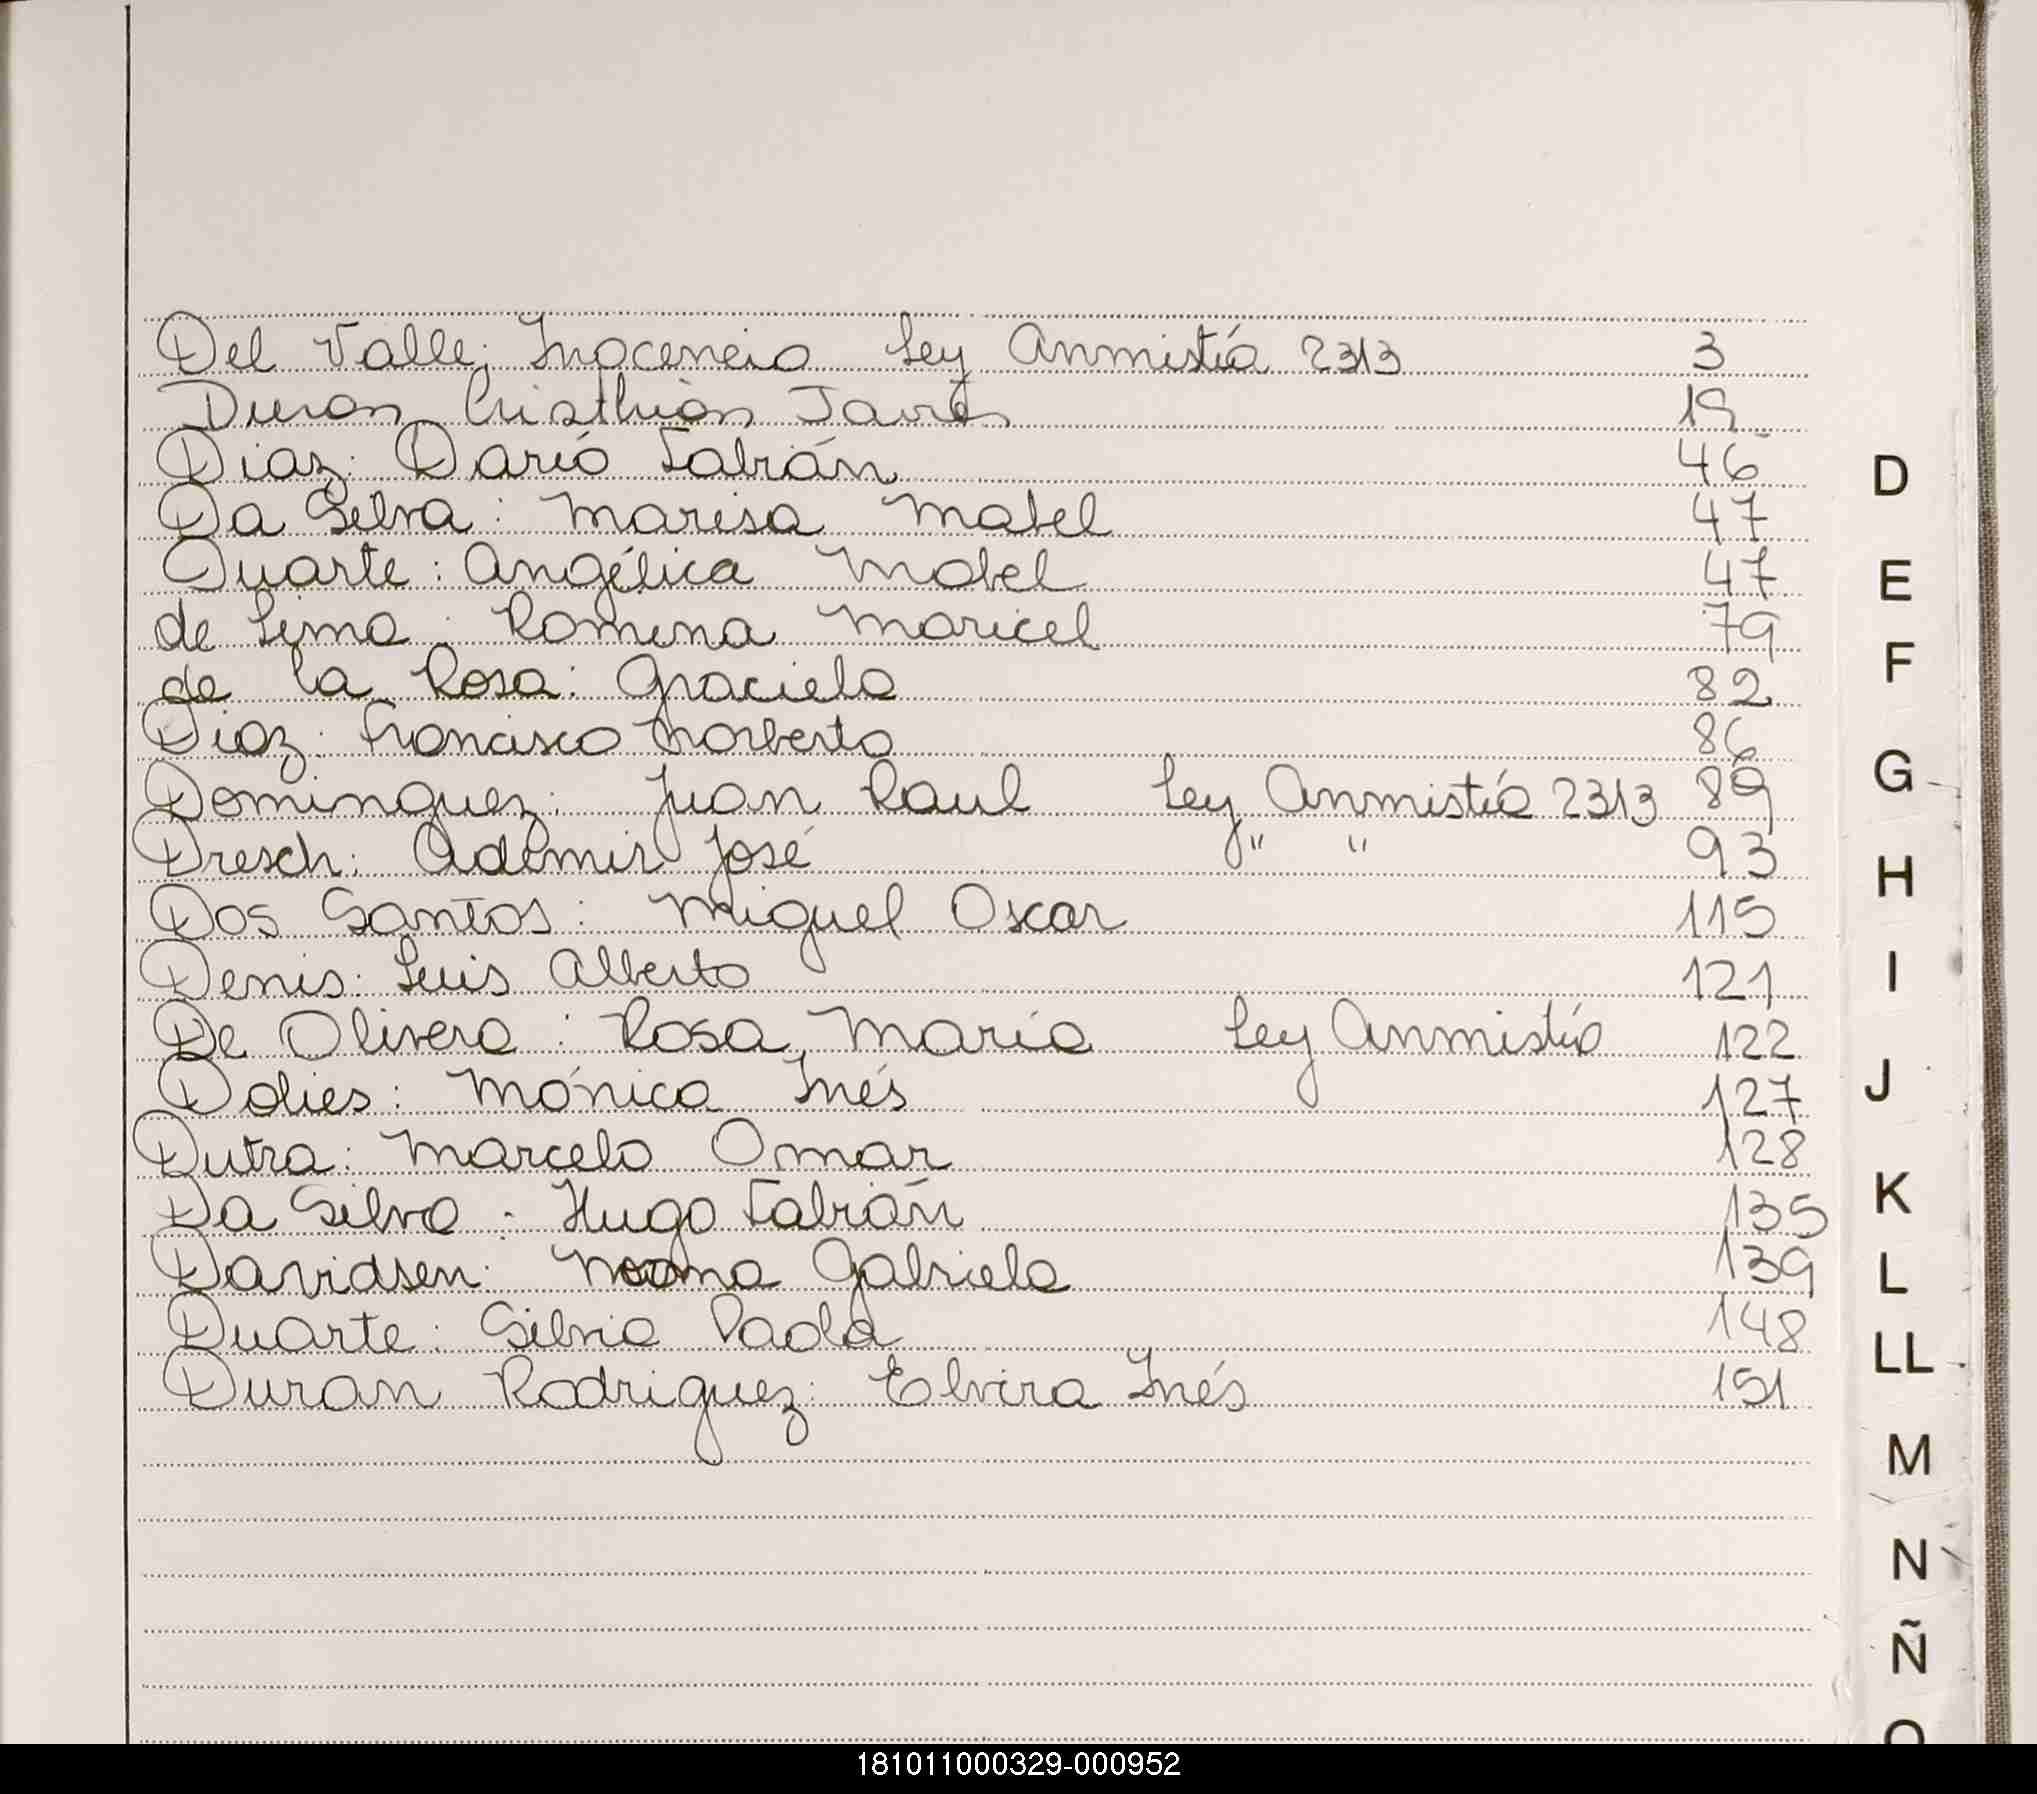 Del Valle: Inocencio Ley Anmistía 2313 3
Duran Cristhian Javier 19
Diaz: Darío Fabián 46
Da Silva: Marisa Mabel 47
Duarte: Angélica Mabel 47
de Lima: Romina Maricel 79
de la Rosa: Graciela 82
Diaz: Francisco Norberto 86
Dominguez: Juan Raul Ley Anmistía 2313 89
Dresch: Ademir José " " 93
Dos Santos: Miguel Oscar 115
Denis: Luis Alberto 121
De Olivera: Rosa María Ley Anmistía 122
Dolies: Mónica Inés 127
Dutra: Marcelo Omar 128
Da Silva: Hugo Fabián 135
Davidsen: Gabriela 139
Duarte: Silvia Paola 148
Duran Rodriguez: Elvira Inés 151
D
E
F
G
H
I
J
K
L
LL
M
N
Ñ
O
181011000329-000952